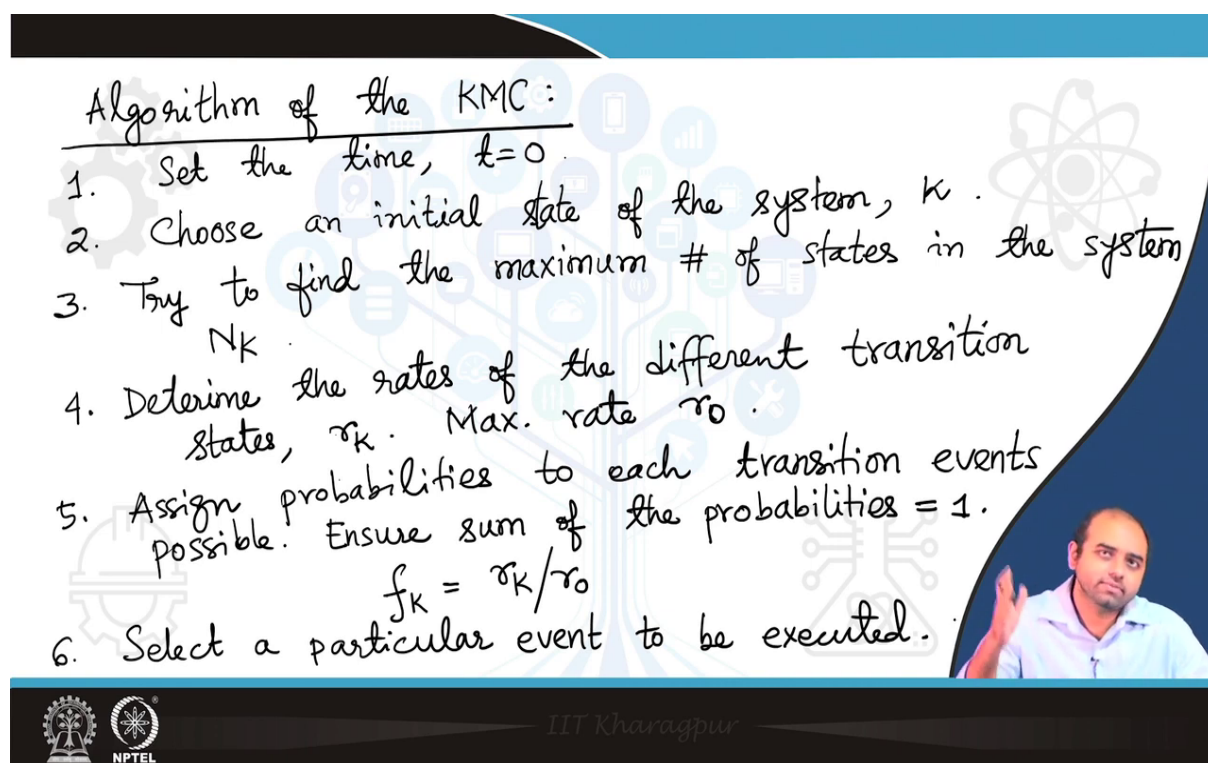 Algorithm of the KMC:
1. Set the time, t=0.
2. Choose an initial state of the system, K.
3. Try to find the maximum # of states in the system
NK.
4. Deterime the rates of the different transition
states, rK. Max. rate r0.
5. Assign probabilities to each transition events
possible. Ensure sum of the probabilities = 1.
fK = rK/r0
6. Select a particular event to be executed.
IIT Kharagpur
NPTEL